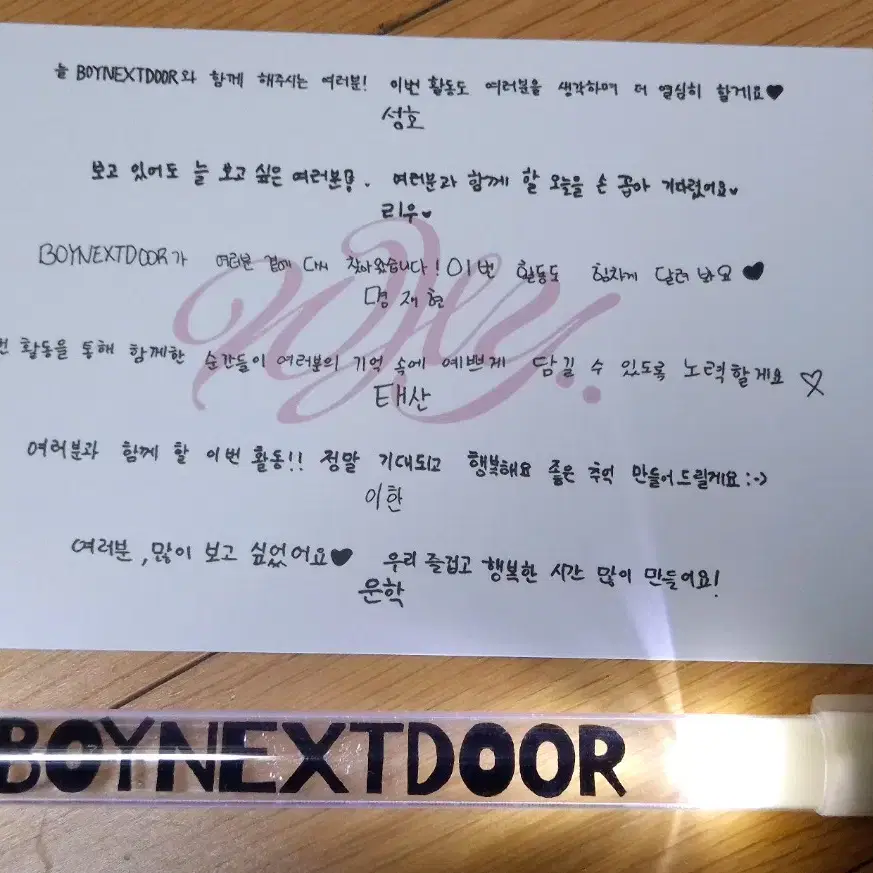 늘 BOYNEXTDOOR와 함께 해주시는 여러분! 이번 활동도 여러분을 생각하며 더 열심히 할게요♥
성호
보고 있어도 늘 보고 싶은 여러분!. 여러분과 함께 할 오늘을 손 꼽아 기다렸어요♥
리우♥
BOYNEXTDOOR가 여러분 곁에 다시 찾아왔습니다! 이번 활동도 힘차게 달려 봐요 ♥
명재현
번 활동을 통해 함께한 순간들이 여러분의 기억 속에 예쁘게 담길 수 있도록 노력할게요 ♡
태산
여러분과 함께 할 이번 활동!! 정말 기대되고 행복해요 좋은 추억 만들어드릴게요:->
이한
여러분, 많이 보고 싶었어요♥ 우리 즐겁고 행복한 시간 많이 만들어요!
운학
WHY.
BOYNEXTDOOR